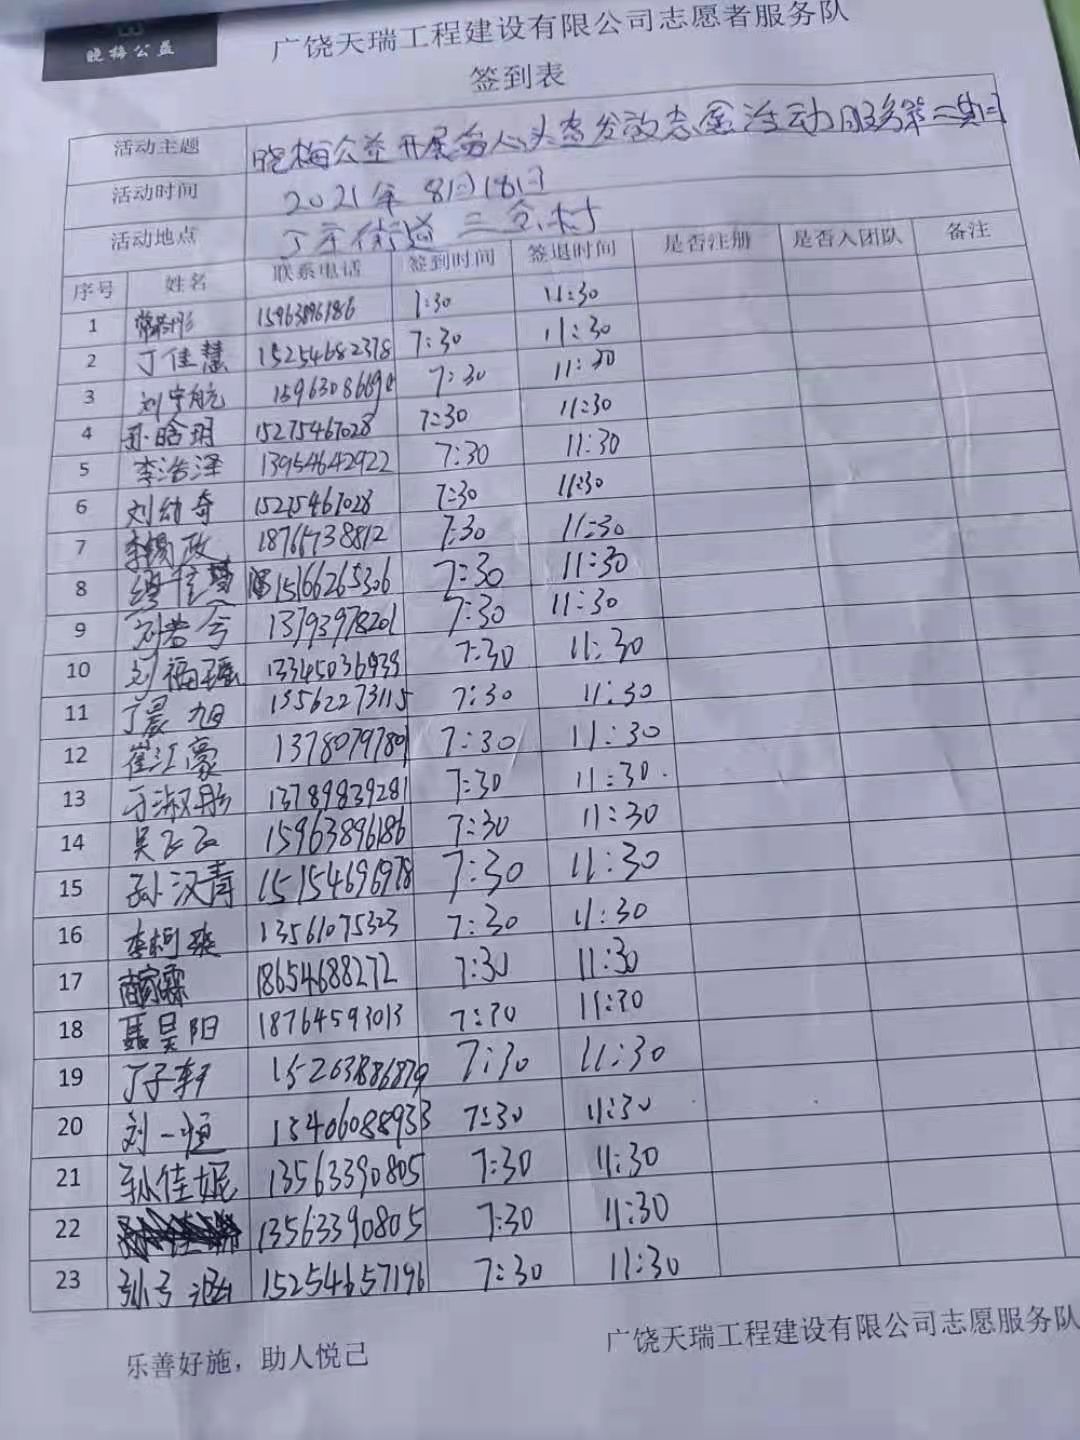 晓梅公益
广饶天瑞工程建设有限公司志愿者服务队
签到表
活动主题 晓梅公益开展为人头杏发放志愿活动服务第二期
活动时间 2021年8月18日
活动地点 丁庄街道三 村
序号 姓名 联系电话 签到时间 签退时间 是否注册 是否入团队 备注
1 15963896186 7:30 11:30
2 丁佳慧 15254682378 7:30 11:30
3 刘宇航 7:30 11:30
4 孙晗玥 15275467028 7:30 11:30
5 李浩泽 13954642922 7:30 11:30
6 刘幼奇 15275467028 7:30 11:30
7 7:30 11:30
8 15166265306 7:30 11:30
9 刘若兮 13793978201 7:30 11:30
10 刘福瑶 13345036939 7:30 11:30
11 丁晨旭 13562273115 7:30 11:30
12 崔江豪 13780797801 7:30 11:30
13 丁淑彤 13789839281 7:30 11:30.
14 吴飞飞 15963896186 7:30 11:30
15 孙汉青 15154696978 7:30 11:30
16 李柯爽 13561075323 7:30 11:30
17 18654688272 7:30 11:30
18 聂昊阳 18764593013 7:30 11:30
19 丁子轩 15263886879 7:30 11:30
20 刘一恒 13406088933 7:30 11:30
21 孙佳妮 13563390805 7:30 11:30
22 13563390805 7:30 11:30
23 15254657196 7:30 11:30
乐善好施，助人悦己
广饶天瑞工程建设有限公司志愿服务队